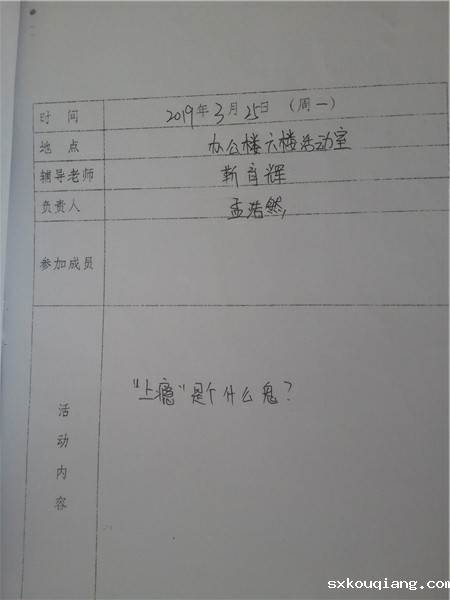 时 间 2019年3月25日 (周一)
地 点 办公楼六楼活动室
辅导老师 靳育辉
负责人 孟浩然
参加成员
活动内容 "上瘾"是个什么鬼?
sxkouqiang.com